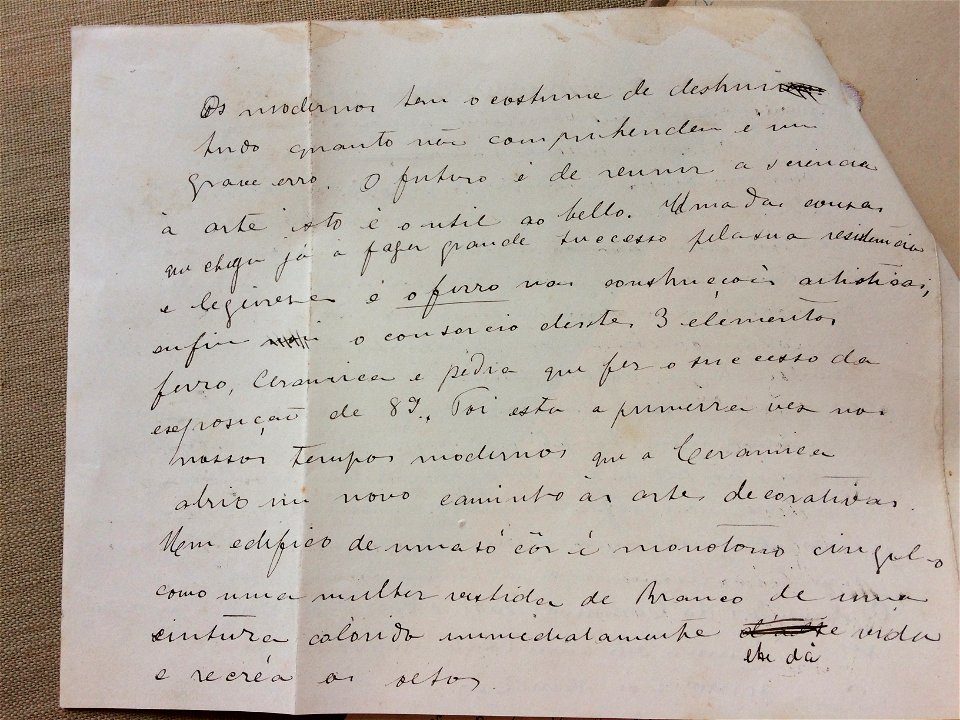 Os modernos tem o costume de destruir
tudo quanto não comprihendem é um
grave erro. O futuro é de reunir a sciencia
à arte isto é o util ao bello. Uma das cousas
que chega já a fazer grande successo pela sua residencia
e legeiresa é o ferro nas construçoès artisticas,
enfin o consorcio destes 3 elementos
ferro, Ceramica e pedra que fez o successo da
exposição de 89. Foi esta a primeira vez nos
nossos tempos modernos que a Ceramica
abrio um novo caminho às artes decorativas.
Um edifico de uma só côr é monotono
como uma mulher vestida de Branco de uma
cintura colorida immediatamente vida
ehe dà
e recréa os